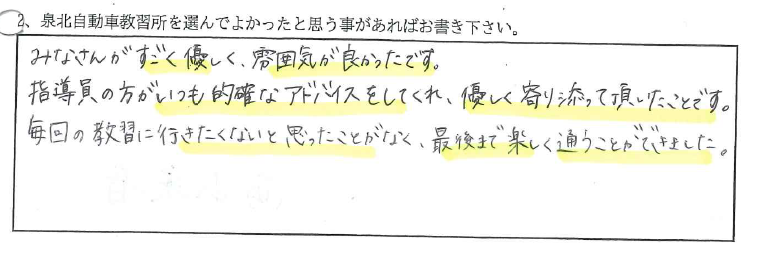 2、泉北自動車教習所を選んでよかったと思う事があればお書き下さい。
みなさんがすごく優しく、雰囲気が良かったです。
指導員の方がいつも的確なアドバイスをしてくれ、優しく寄り添って頂いたことです。
毎回の教習に行きたくないと思ったことがなく、最後まで楽しく通うことができました。